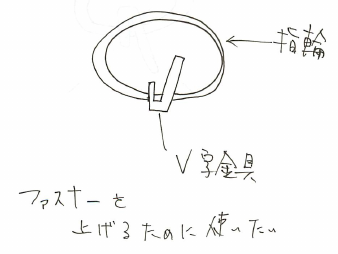 指輪
V字金具
ファスナーを
上げるために使いたい